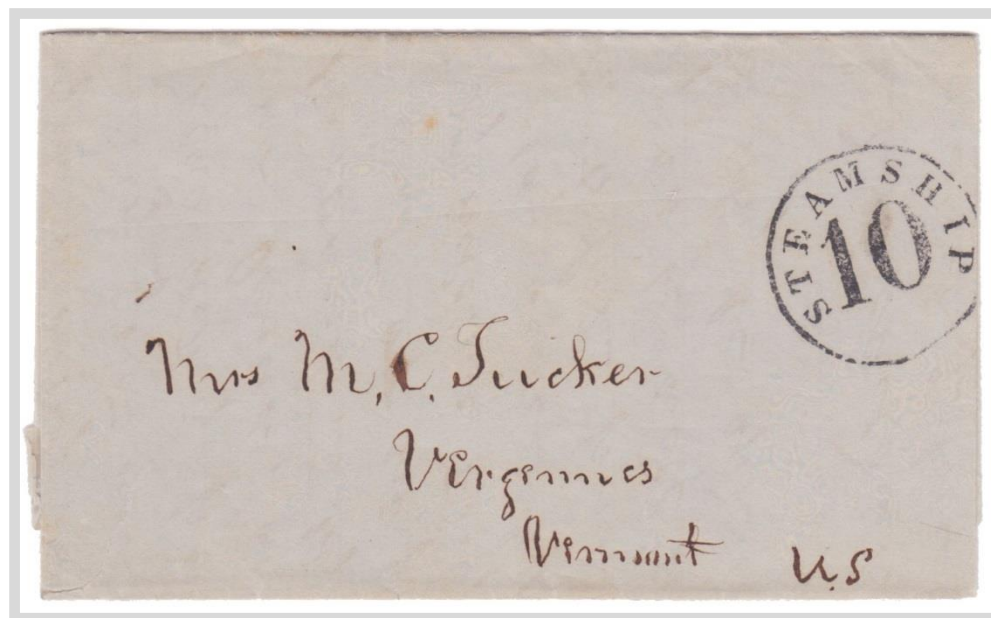 STEAMSHIP
10
Mrs M. C. Tucker
Vergennes
Vermont U.S